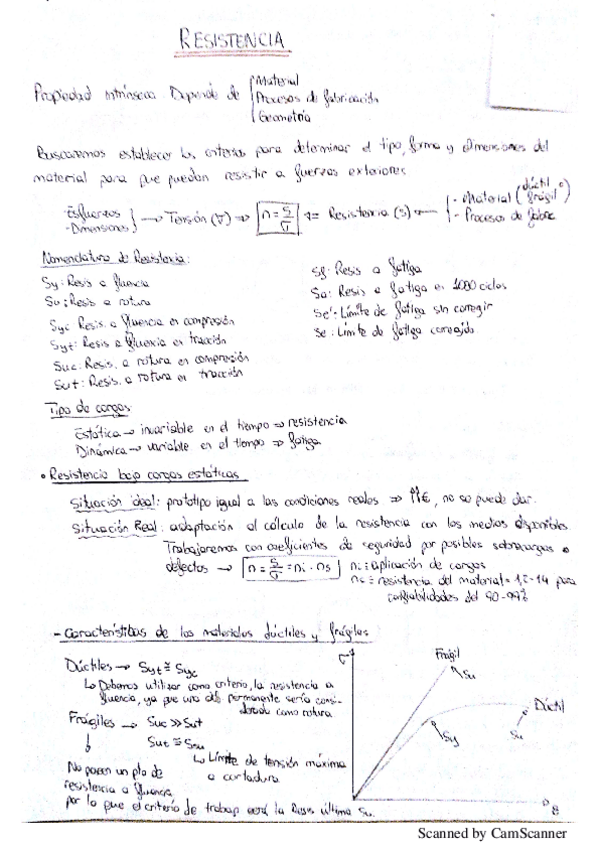 RESISTENCIA
Propiedad intrínseca. Depende de { Material
Procesos de fabricación
Geometría
Buscaremos establecer los criterios para determinar el tipo, forma y dimensiones del
material para que puedan resistir a fuerzas exteriores
- Esfuerzos
- Dimensiones } → Tensión (σ) ⇒ n = S/σ ⇐ Resistencia (S) ← { - Material (dúctil o frágil)
- Procesos de fabric.
Nomenclatura de Resistencia:
Sy: Resis a fluencia
Su: Resis a rotura
Syc: Resis. a fluencia en compresión
Syt: Resis a fluencia en tracción
Suc: Resis. a rotura en compresión
Sut: Resis. a rotura en tracción
Sf: Resis a fatiga
Resis a fatiga en 1000 ciclos
Se': Límite de fatiga sin corregir
Se: Límite de fatiga corregido
Tipo de cargas:
Estática → invariable en el tiempo ⇒ resistencia
Dinámica → variable en el tiempo ⇒ fatiga
• Resistencia bajo cargas estáticas
Situación ideal: prototipo igual a las condiciones reales ⇒ no se puede dar.
Situación Real: adaptación al cálculo de la resistencia con los medios disponibles
Trabajaremos con coeficientes de seguridad por posibles sobrecargas o
defectos → n = S/σ = ni · ns } ni: aplicación de cargas
ns: resistencia del material = 1,2-1,4 para
confiabilidades del 90-99%
- Características de los materiales dúctiles y frágiles
Dúctiles → Syt ≅ Syc
↳ Debemos utilizar como criterio, la resistencia a
fluencia, ya que una def. permanente sería consi-
derado como rotura.
Frágiles → Suc >> Sut
Sut ≅ Ssu
↳ Límite de tensión máxima
a cortadura
No poseen un pto de
resistencia a fluencia,
por lo que el criterio de trabajo será la Resis. última Su.
σ
Frágil
Su
Dúctil
Sy
Su
ε
Scanned by CamScanner